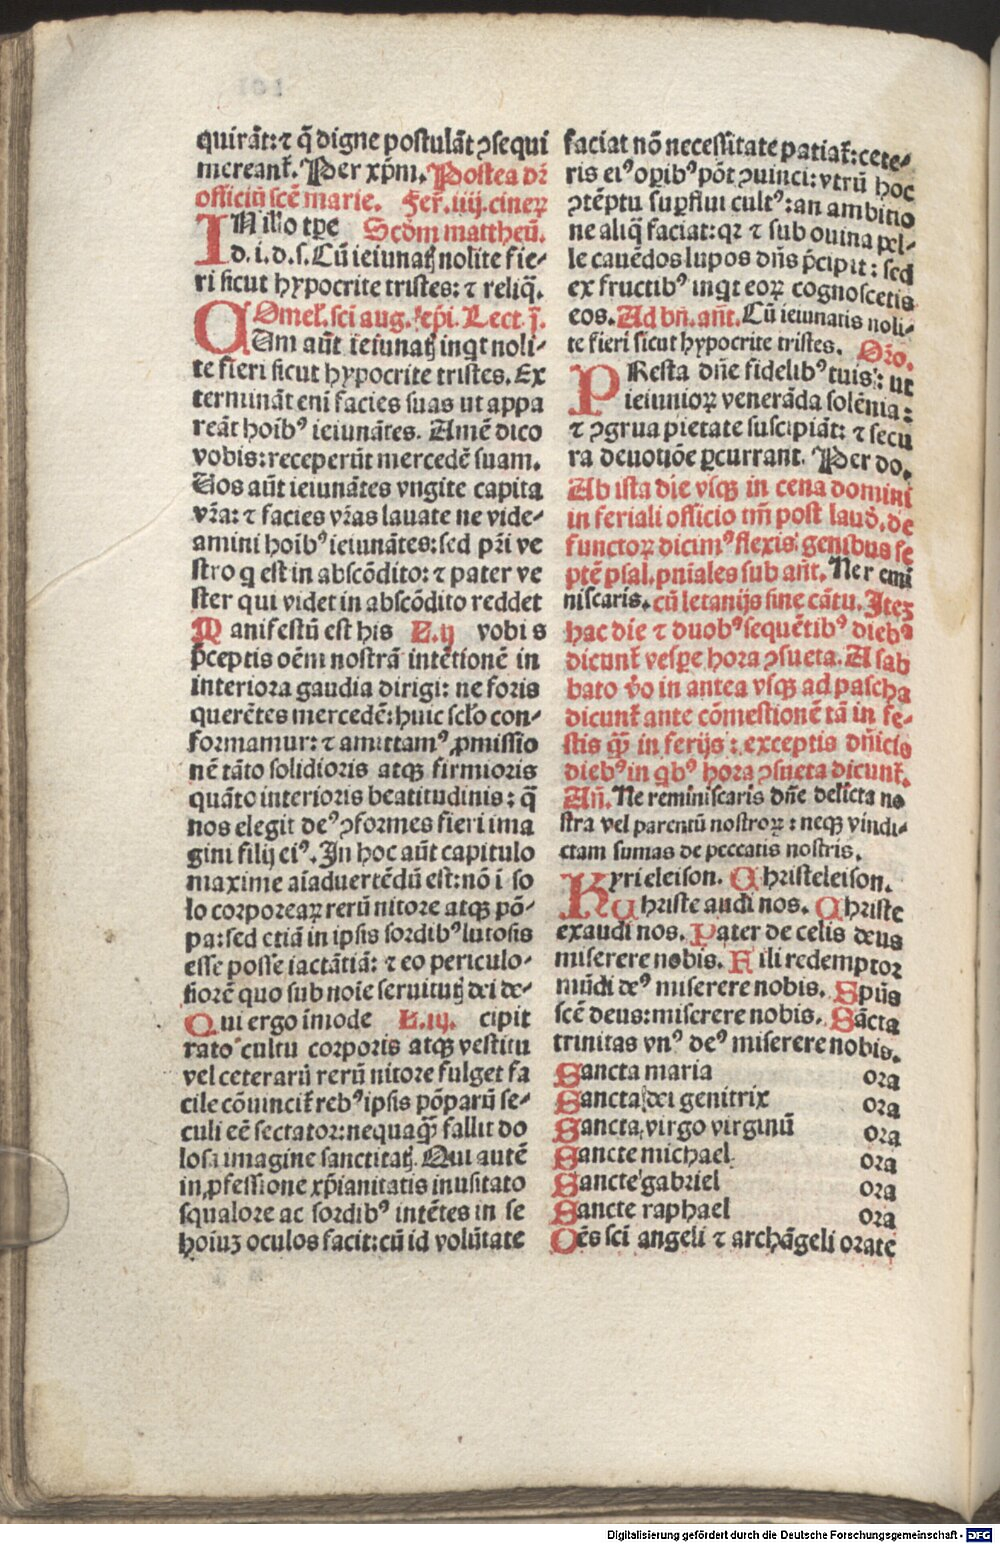 quirāt: ⁊ q̄ digne postulāt ꝯsequi
mereant̄. Per xp̄m. Postea dr̄
officiū scē marie. Fer̄. iiij. cinerꝝ
IN illo tp̄e Scd̄m mattheū.
d. i. d. s. Cū ieiunatꝭ nolite fie-
ri sicut hypocrite tristes: ⁊ reliq̄.
Omel̄. sci aug. ep̄i. Lect. j̄.
CUm aūt ieiunatꝭ inqt noli-
te fieri sicut hypocrite tristes. Ex
termināt eni facies suas ut appa
reāt hoībꝰ ieiunātes. Amē dico
vobis: receperūt mercedē suam.
Uos aūt ieiunātes vngite capita
vr̄a: ⁊ facies vr̄as lauate ne vide-
amini hoībꝰ ieiunātes: sed pr̄i ve
stro q est in abscōdito: ⁊ pater ve
ster qui videt in abscōdito reddet
Manifestū est his L. ij vobis
p̄ceptis oēm nostrā intētionē in
interiora gaudia dirigi: ne foris
querētes mercedē: huic sclo con-
formamur: ⁊ amittamꝰ ꝓmissio
nē tāto solidioris atqꝫ firmioris
quāto interioris beatitudinis: q̄
nos elegit deꝰ ꝯformes fieri ima
gini filij eiꝰ. In hoc aūt capitulo
maxime aīaduertēdū est: nō i so
lo corporearꝝ rerū nitore atqꝫ pō-
pa: sed etiā in ipsis sordibꝰ lutosis
esse posse iactātiā: ⁊ eo periculo-
siorē quo sub noīe seruitutꝭ dei de-
Qui ergo īmode L. iij. cipit
rato cultu corporis atqꝫ vestitu
vel ceterarū rerū nitore fulget fa
cile cōuincit̄ rebꝰ ipsis pōparū se-
culi eē sectator: nequaqꝫ̄ fallit do
losa imagine sanctitatꝭ. Qui autē
in ꝓfessione xp̄ianitatis inusitato
squalore ac sordibꝰ intētes in se
hoiuꝫ oculos facit: cū id volūtate
faciat nō necessitate patiat̄: cete-
ris eiꝰ oꝑibꝰ pōt ꝯuinci: vtrū hoc
ꝯtēptu suꝑflui cultꝰ: an ambitio
ne aliq̄ faciat: qꝛ ⁊ sub ouina pel-
le cauēdos lupos dn̄s p̄cipit: sed
ex fructibꝰ inqt eorꝝ cognoscetis
eos. Ad bn̄. ant̄. Cū ieiunatis noli-
te fieri sicut hypocrite tristes. Oro.
PResta dn̄e fidelibꝰ tuis: ut
ieiuniorꝝ venerāda solēnia:
⁊ ꝯgrua pietate suscipiāt: ⁊ secu
ra deuotiōe ꝑcurrant. Per do.
Ab ista die vsqꝫ in cena domini
in feriali officio tm̄ post laud̄. de
functorꝝ dicimꝰ flexis genibus se
ptē psal. pn̄iales sub ant̄. Ne remi
niscaris. cū letanijs sine cātu. Iteꝫ
hac die ⁊ duobꝰ sequētibꝰ diebꝰ
dicunt̄ vespe hora ꝯsueta. A sab
bato v̄o in antea vsqꝫ ad pascha
dicunt̄ ante cōmestionē tā in fe-
stis qꝫ̄ in ferijs: exceptis dn̄icis
diebꝰ in qbꝰ hora ꝯsueta dicunt̄.
An̄. Ne reminiscaris dn̄e delicta no
stra vel parentū nostrorꝝ: neqꝫ vindi-
ctam sumas de peccatis nostris.
Kyrieleison. Christeleison.
Christe audi nos. Christe
exaudi nos. Pater de celis deus
miserere nobis. Fili redemptor
mūdi deꝰ miserere nobis. Spūs
scē deus: miserere nobis. Sācta
trinitas vnꝰ deꝰ miserere nobis.
Sancta maria ora
Sancta dei genitrix ora
Sancta virgo virginū ora
Sancte michael ora
Sancte gabriel ora
Sancte raphael ora
Oēs sci angeli ⁊ archāgeli orate
Digitalisierung gefördert durch die Deutsche Forschungsgemeinschaft - DFG